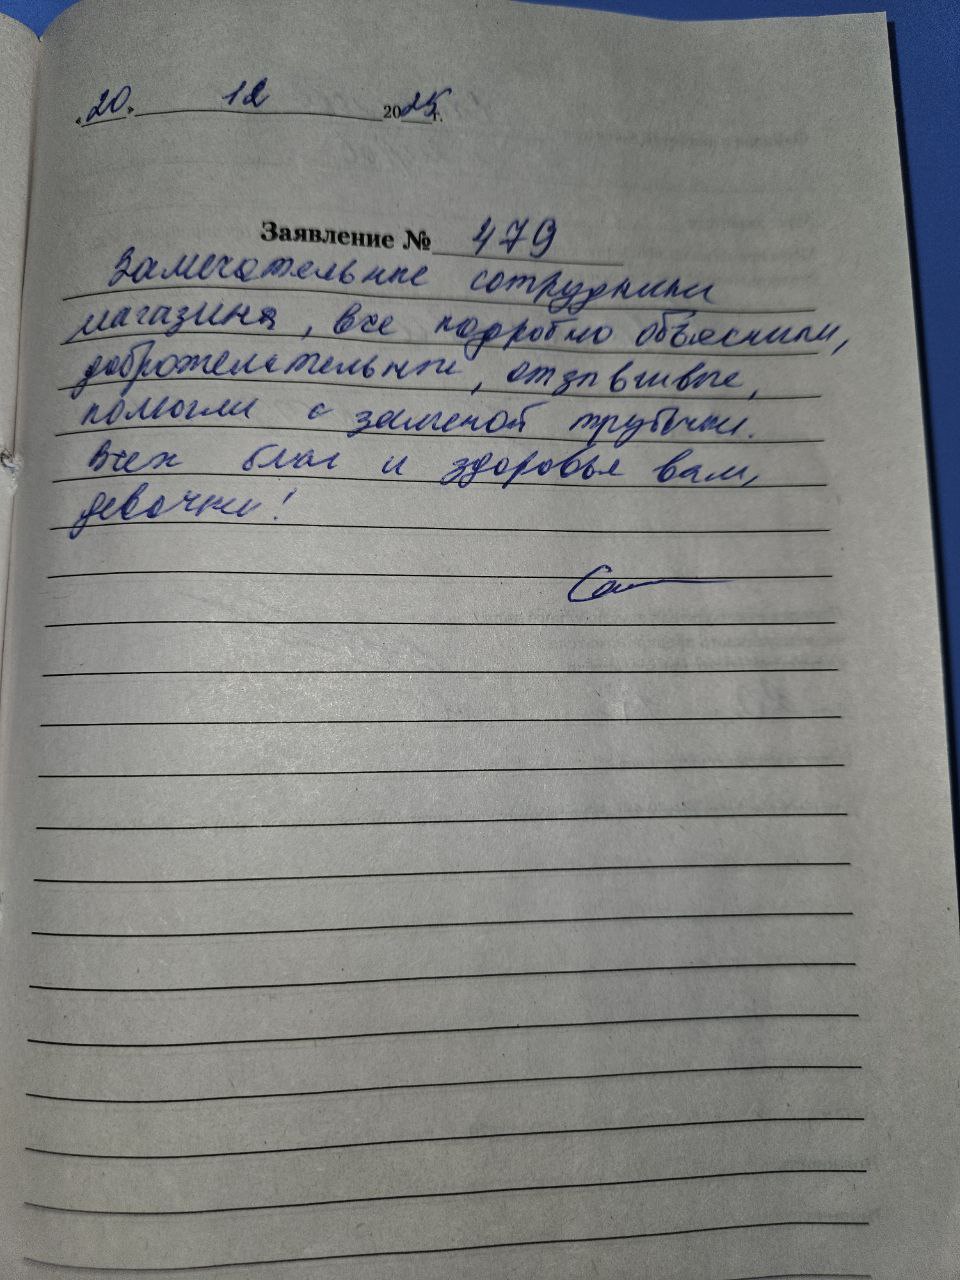 «20» 12 2025г.
Заявление № 479
Замечательные сотрудники
магазина, все подробно объяснили,
доброжелательные, отзывчивые,
помогли с заменой трубочки.
Всех благ и здоровья вам,
девочки!